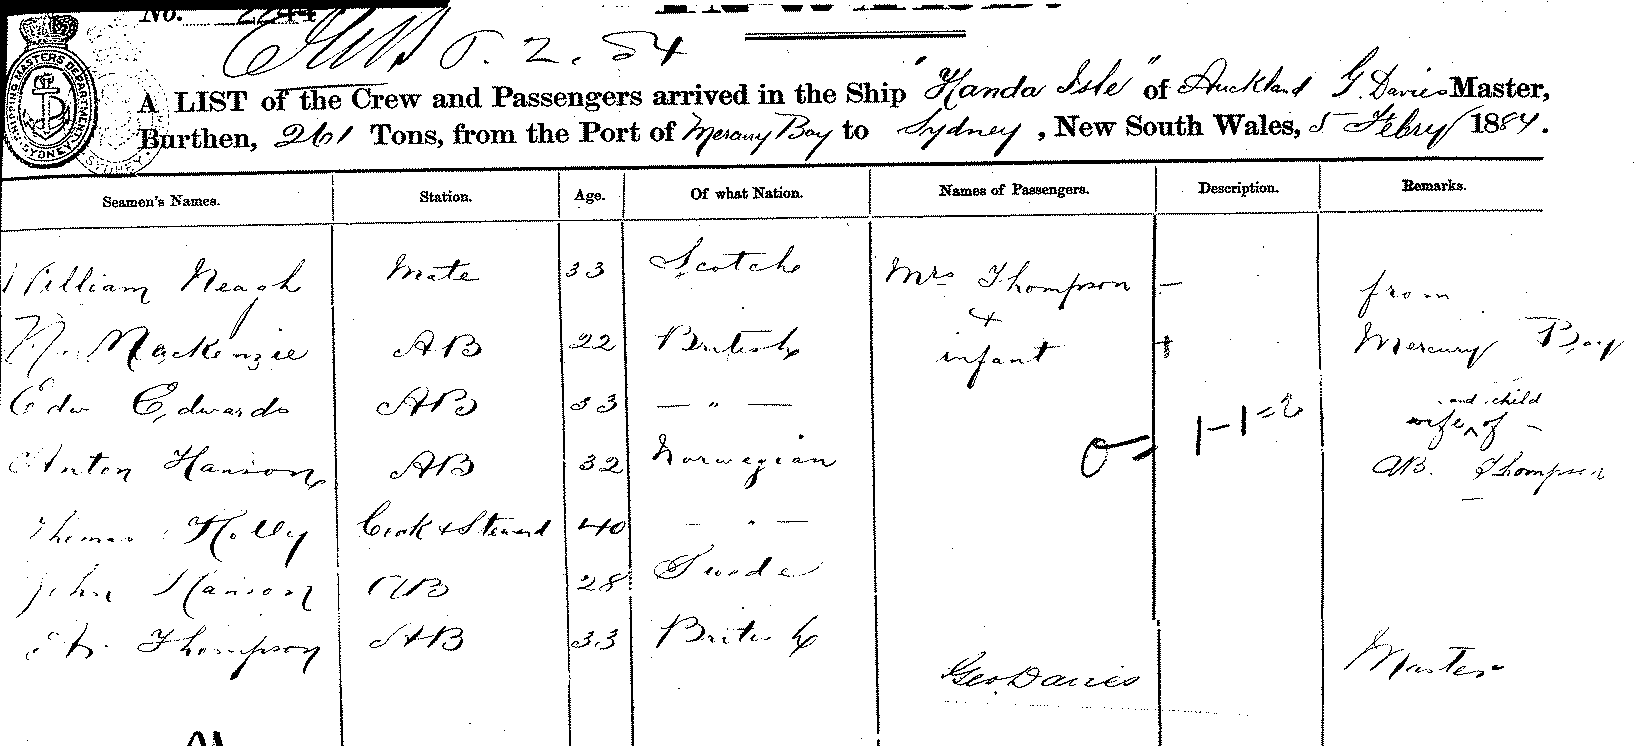 No. 2244
5.2.84
A LIST of the Crew and Passengers arrived in the Ship "Handa Isle" of Auckland G. Davies Master,
Burthen, 261 Tons, from the Port of Mercury Bay to Sydney, New South Wales, 5 Febry 1884.
Seamen's Names. Station. Age. Of what Nation. Names of Passengers. Description. Remarks.
William Neagh Mate 33 Scotch Mrs Thompson — from
Mackenzie AB 22 British + infant Mercury Bay
Edw Edwards AB 33 — " — 1-1=2 wife and child of —
Anton Hanson AB 32 Norwegian AB. Thompson
Thomas Kelly Cook & Steward 40 — " —
John Hanson AB 28 Swede
Thompson AB 33 British
Geo. Davies Master